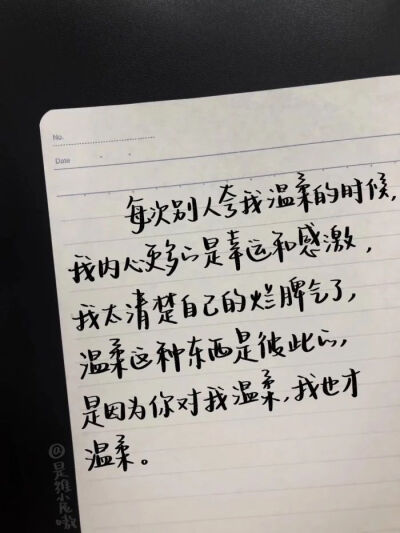 No.
Date
每次别人夸我温柔的时候,
我内心更多的是幸运和感激,
我太清楚自己的烂脾气了,
温柔这种东西是彼此的,
是因为你对我温柔,我也才
温柔。